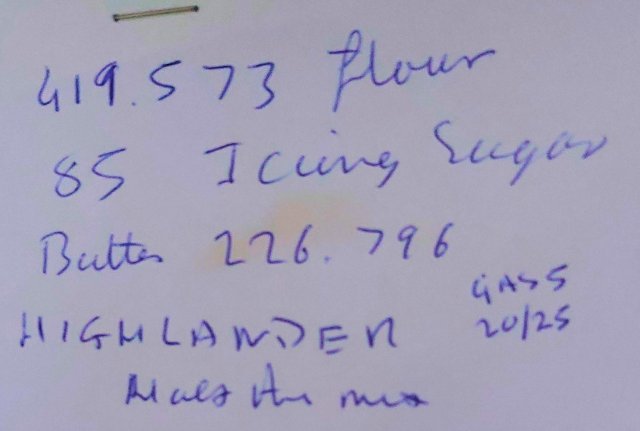 419.573 flour
85 Icing Sugar
Butter 226.796
GAS 5
20/25
HIGHLANDER
Makes the mix